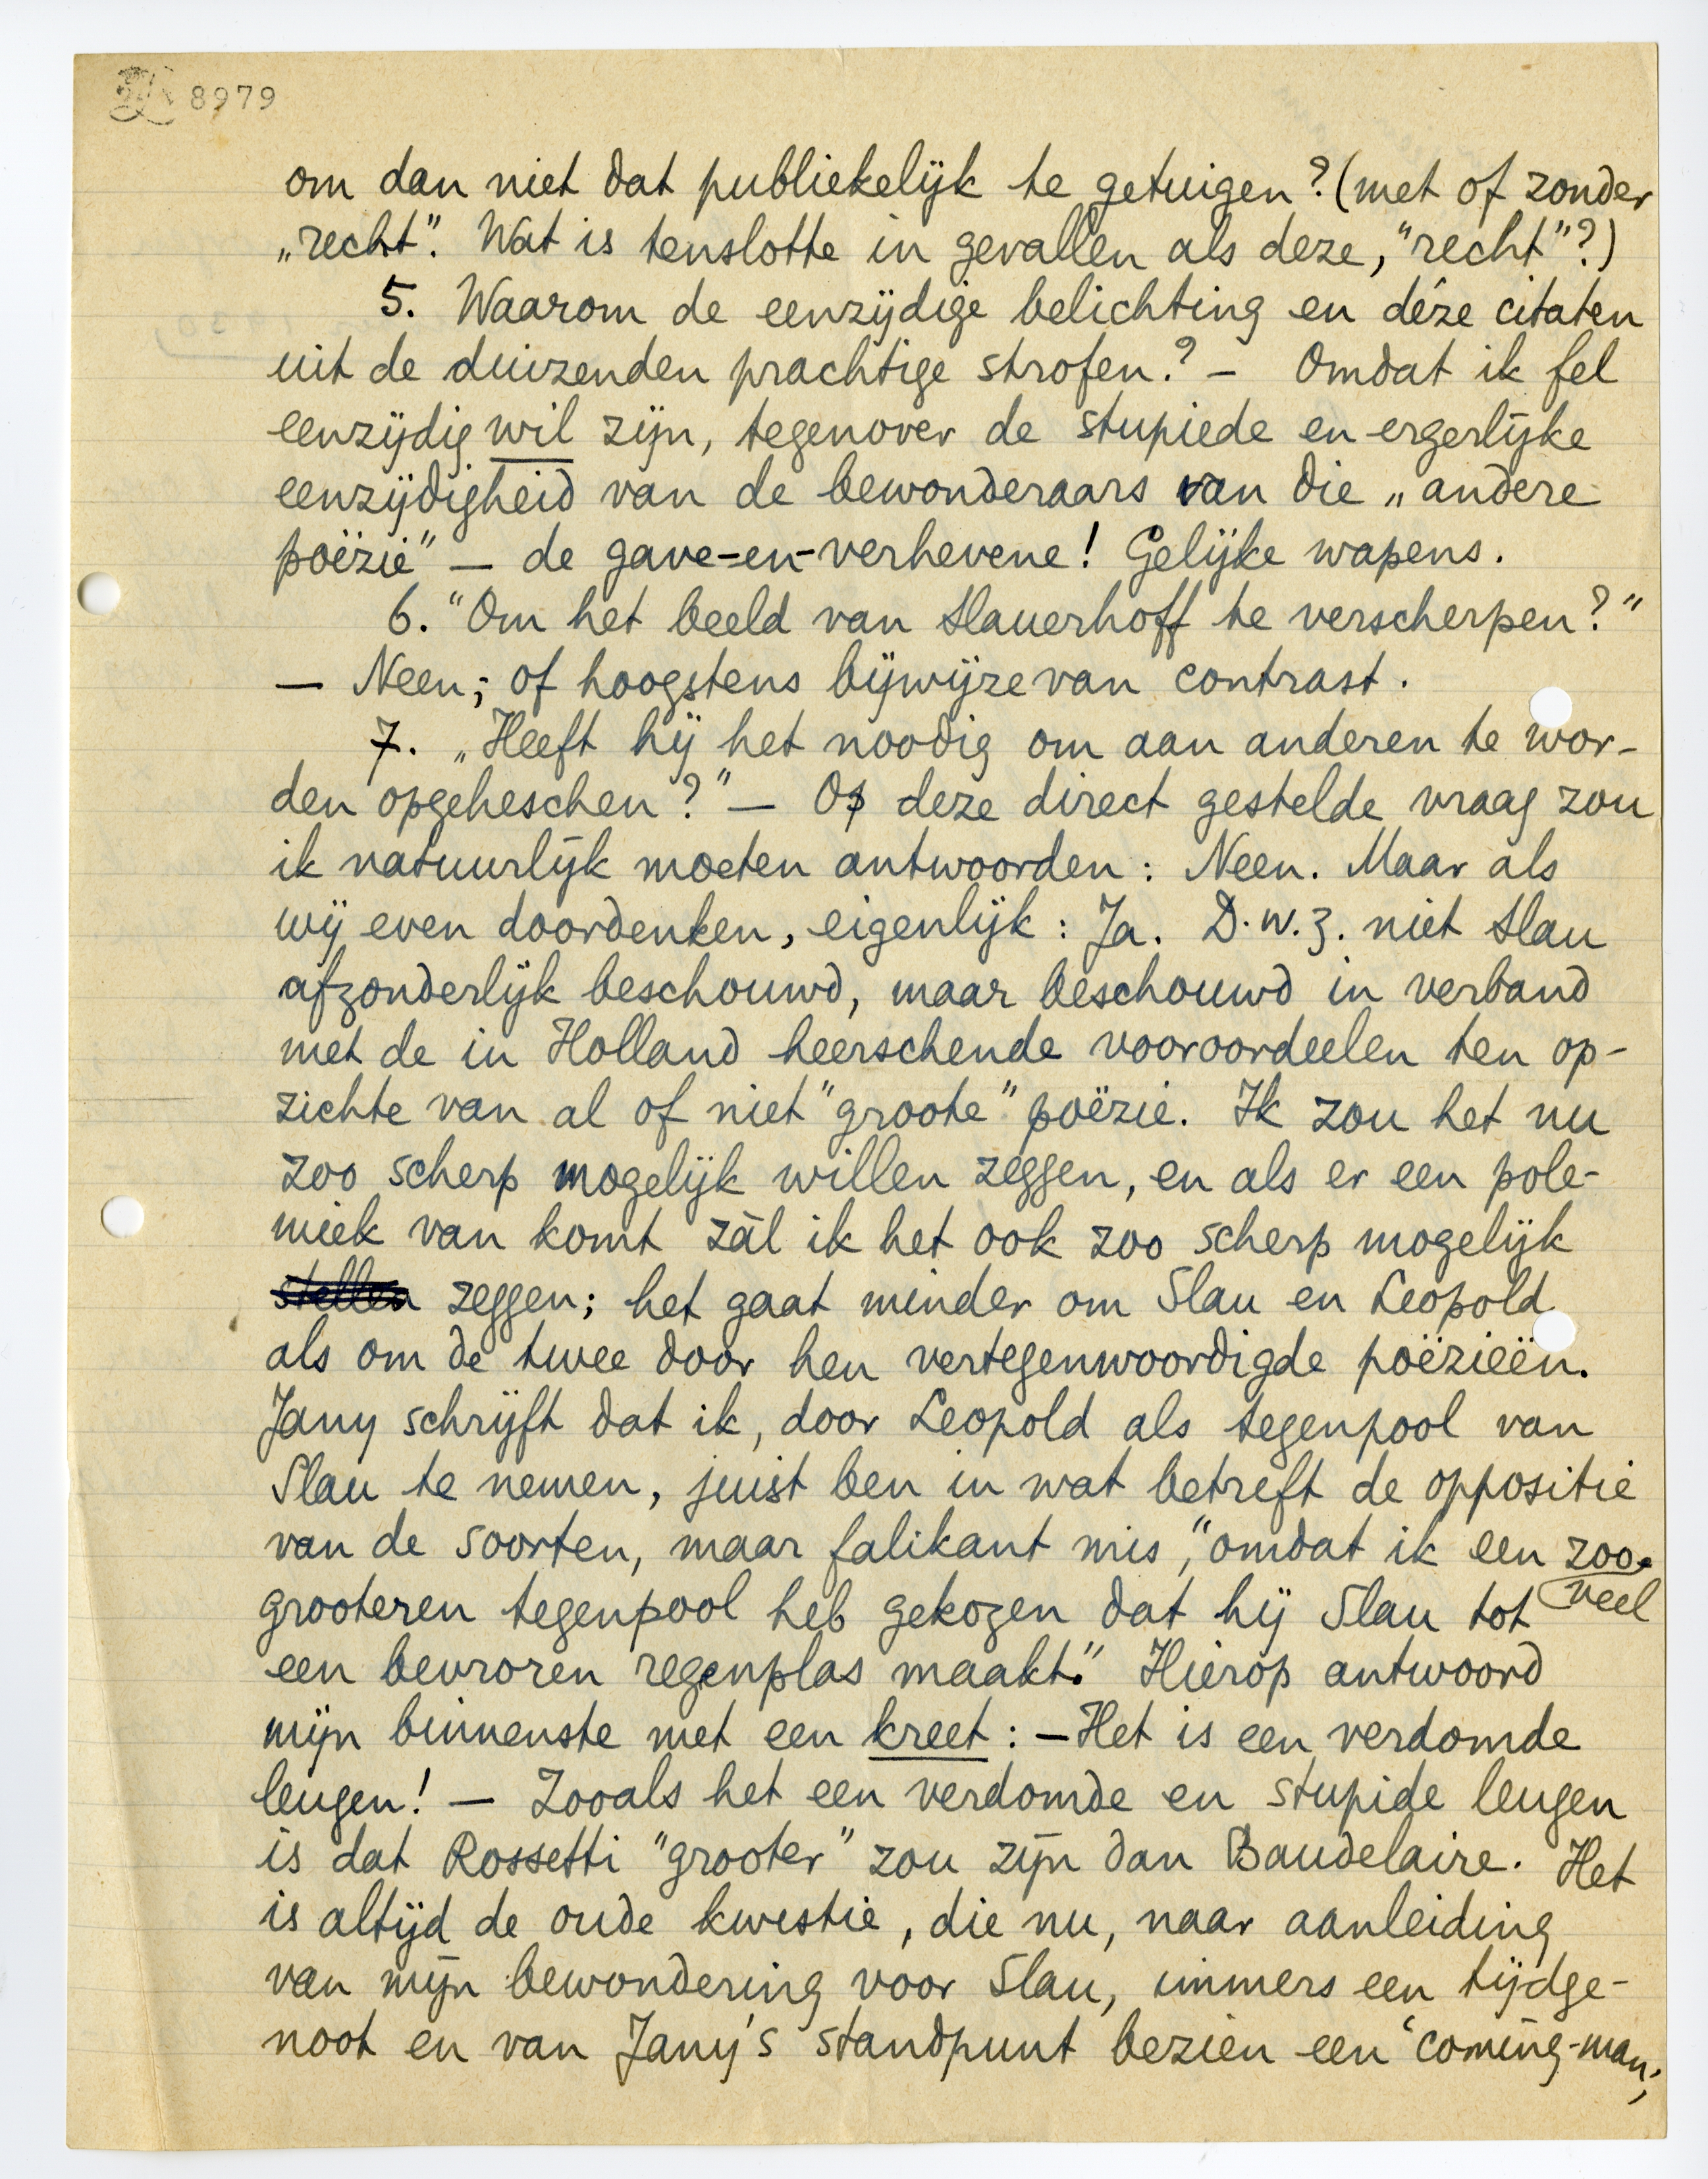 8979
om dan niet dat publiekelijk te getuigen? (met of zonder
„recht". Wat is tenslotte in gevallen als deze, "recht"?)
5. Waarom de eenzijdige belichting en déze citaten
uit de duizenden prachtige strofen? – Omdat ik fel
eenzijdig wil zijn, tegenover de stupiede en ergerlijke
eenzijdigheid van de bewonderaars van die „andere
poëzie" – de gave-en-verhevene! Gelijke wapens.
6. "Om het beeld van Slauerhoff te verscherpen?"
– Neen; of hoogstens bijwijze van contrast.
7. „Heeft hij het noodig om aan anderen te wor-
den opgeheschen?" – Op deze direct gestelde vraag zou
ik natuurlijk moeten antwoorden: Neen. Maar als
wij even doordenken, eigenlijk: Ja. D.w.z. niet Slau
afzonderlijk beschouwd, maar beschouwd in verband
met de in Holland heerschende vooroordeelen ten op-
zichte van al of niet "groote" poëzie. Ik zou het nu
zoo scherp mogelijk willen zeggen, en als er een pole-
miek van komt zàl ik het ook zoo scherp mogelijk
stellen zeggen; het gaat minder om Slau en Leopold
als om de twee door hen vertegenwoordigde poëzieën.
Jany schrijft dat ik, door Leopold als tegenpool van
Slau te nemen, juist ben in wat betreft de oppositie
van de soorten, maar falikant mis, "omdat ik een zoo-
veel
grooteren tegenpool heb gekozen dat hij Slau tot
een bevroren regenplas maakt." Hierop antwoord
mijn binnenste met een kreet: – Het is een verdomde
leugen! – Zooals het een verdomde en stupide leugen
is dat Rossetti "grooter" zou zijn dan Baudelaire. Het
is altijd de oude kwestie, die nu, naar aanleiding
van mijn bewondering voor Slau, immers een tijdge-
noot en van Jany's standpunt bezien een 'coming-man',